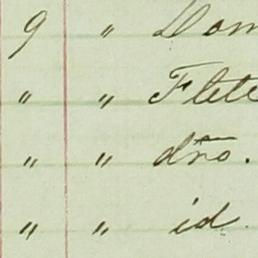 9 " Dom
" " Flete
" " dño.
" " id.